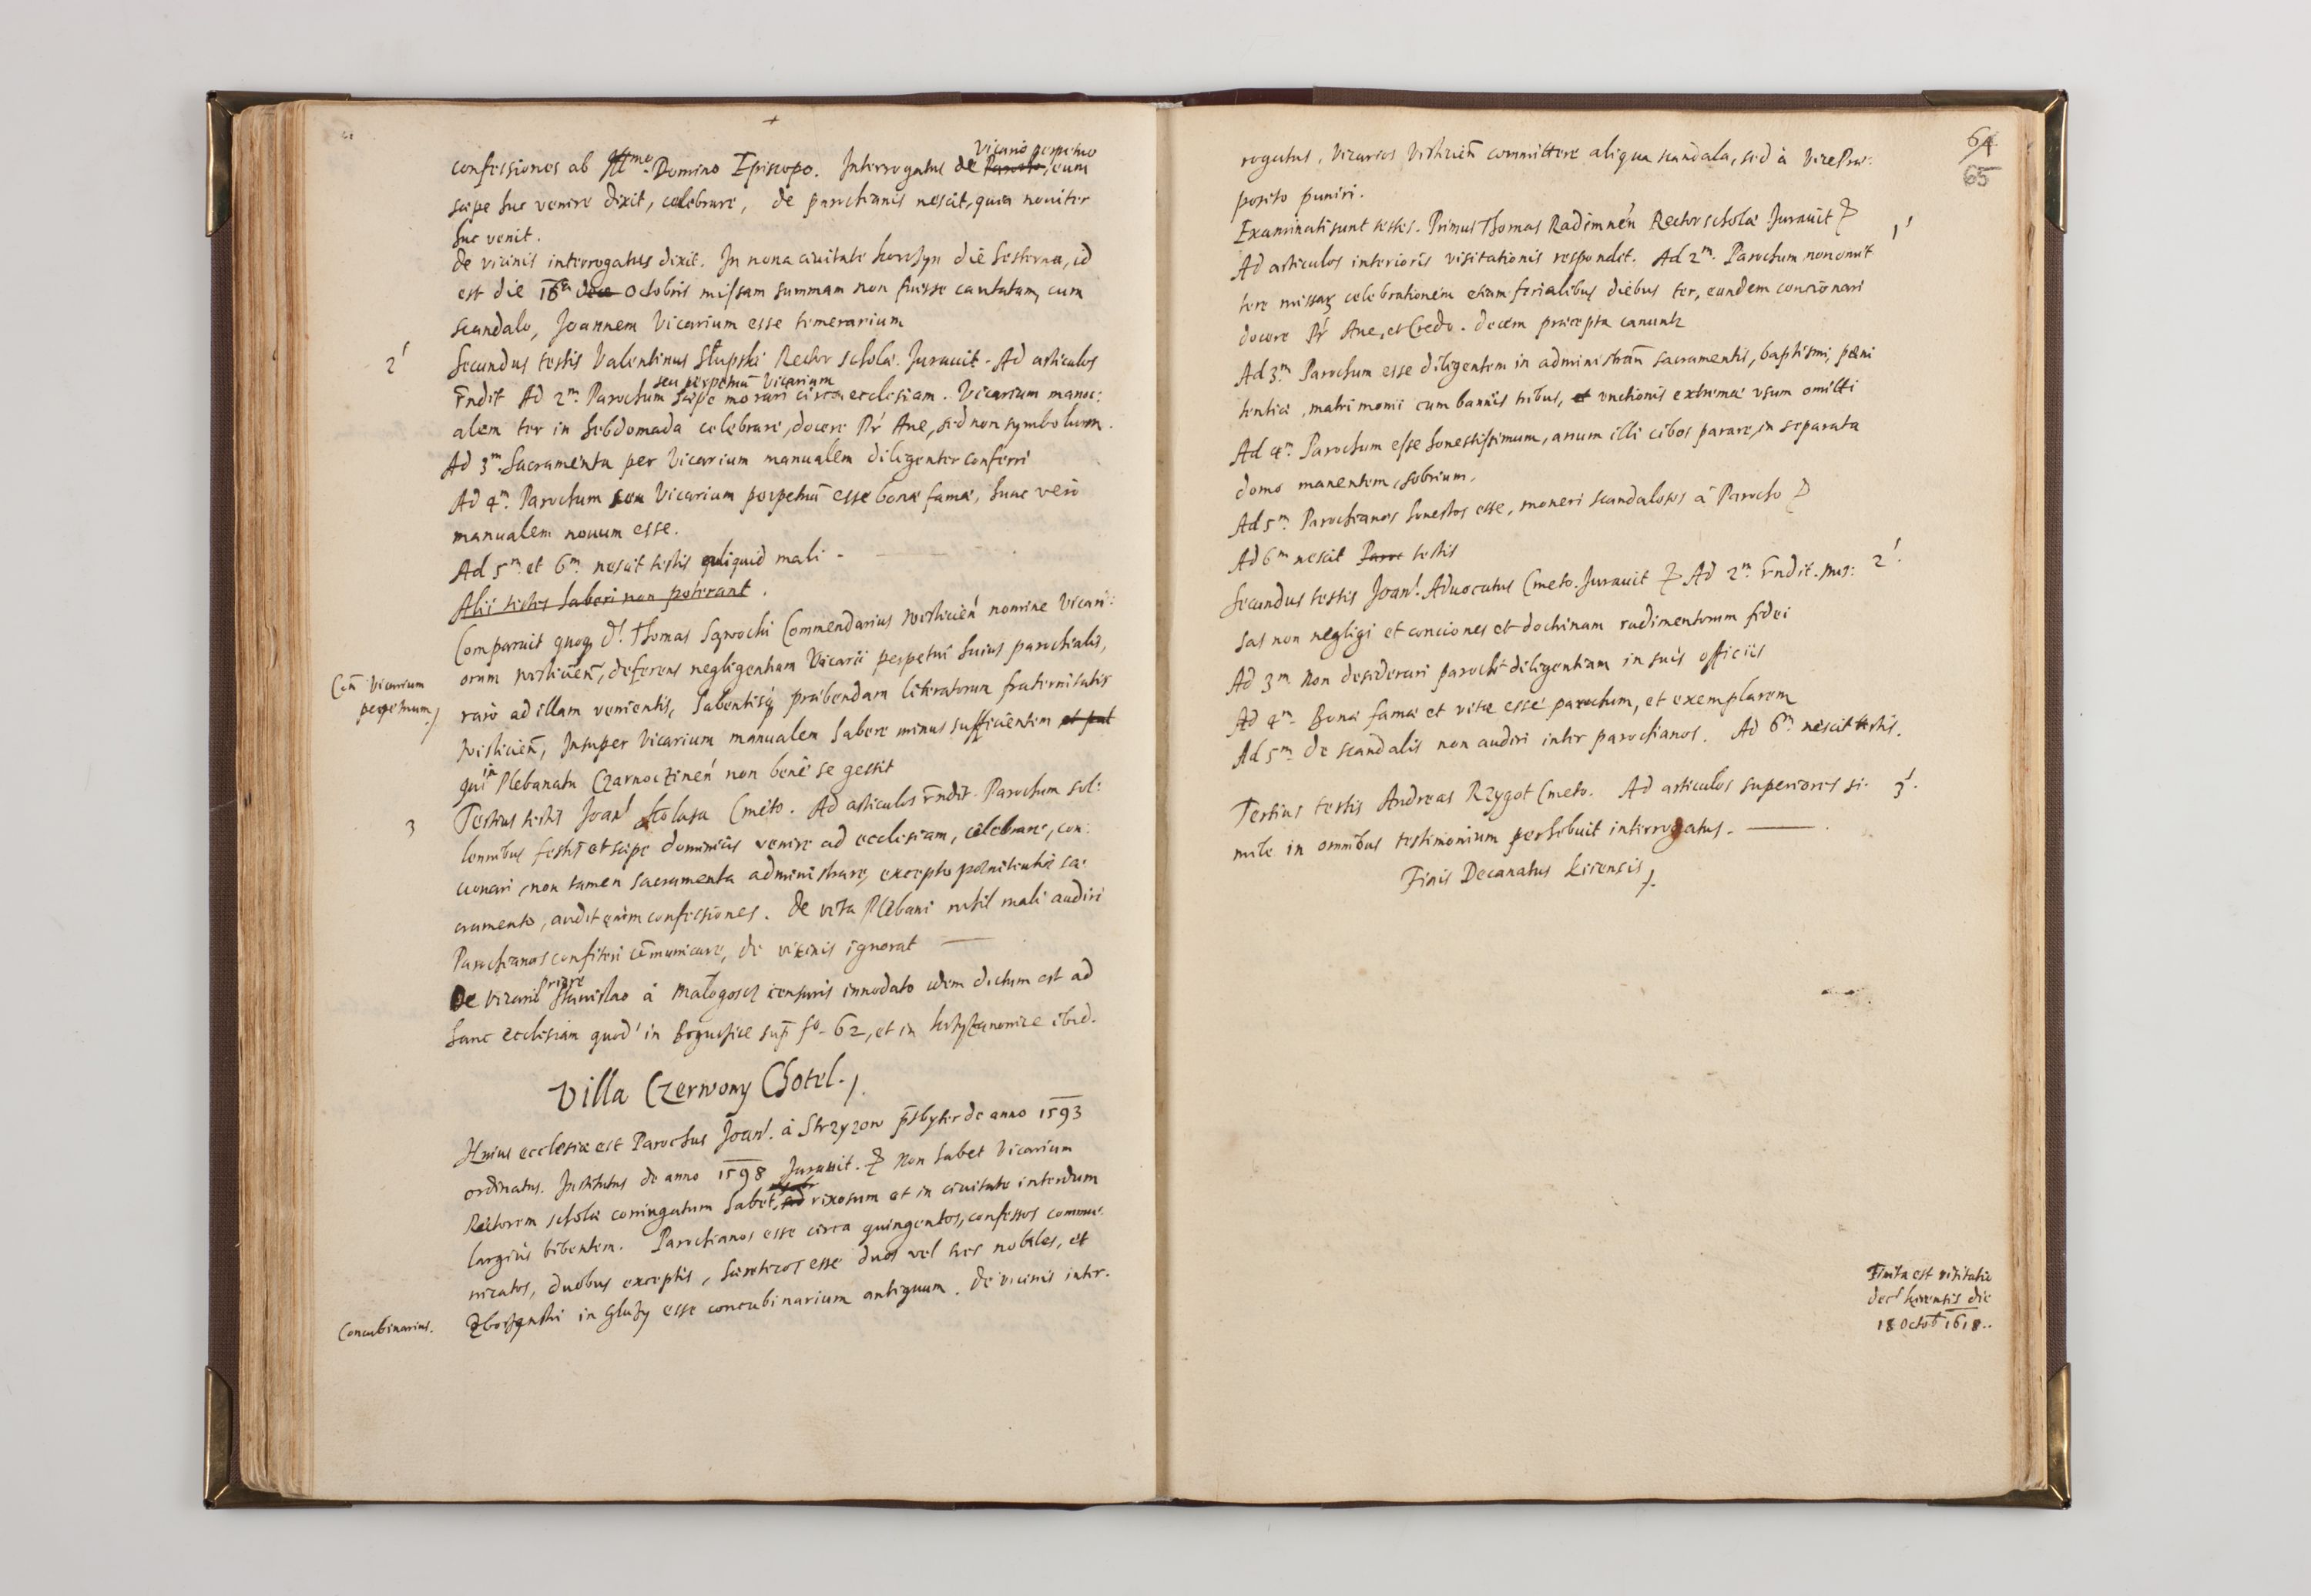 confessiones ab Illmo Domino Episcopo. Interrogatus de Vicario perpetuo, eum
sæpe huc venire dixit, celebrare, de parochianis nescit, quia noviter
huc venit.
de vicinis interrogatus dixit. In nona ciuitate korczyn die hesterna, id
est die 16a Octobris missam summam non fuisse cantatam, cum
scandalo, Joannem Vicarium esse temerarium
2
Secundus testis Valentinus Słupski Rector scholæ. Jurauit. Ad articulos
rndit Ad 2m. Parochum seu perpetuū Vicarium sæpe morari circa ecclesiam. Vicarium manu:
alem ter in hebdomada celebrare, docere Pr Aue, sed non symbolum.
Ad 3m. Sacramenta per Vicarium manualem diligenter conferri
Ad 4m. Parochum seu Vicarium perpetuū esse bonæ famæ, hunc verò
manualem nouum esse.
Ad 5m. et 6m. nescit testis quliquid mali -
Alii testes haberi non poterant.
Comparuit quoq D. Thomas Sqwochi Commendarius wisliciēn nomine Vicari:
orum wisliciēn, deferens negligentiam Vicarii perpetui huius parochialis,
Cōn Vicarium
perpetuum
raro ad illam venientis, habentisq præbendam literatorum fraternitatis
wisliciēn, Insuper Vicarium manualem habere minus sufficientem et put
qui in Plebanatu Czarnoczinēn non benè se gessit
3
Tertius testis Joan Kolasa Cmeto. Ad articulos rndit. Parochum sol:
lennibus festis et sæpe dominicis venire ad ecclesiam, celebrare, con:
cionari, non tamen sacramenta administrare, excepto pœnitentiæ sa:
cramento, audit enim confessiones. De vita Plebani nihil mali audiri
Parochianos confiteri cōmunicare, de vicinis ignorat
De Vicario priore Stanislao à Małogosch censuris innodato idem dictum est ad
hanc ecclesiam quod in Boguchice sup fo. 62, et in krzyzanowice ibid.
Villa Czerwony Chotel.
Huius ecclesiæ est Parochus Joan. à Strzyzow psbyter de anno 1593
ordinatus. Institutus de anno 1598 Jurauit. Non habet Vicarium
Rectorem scholæ coniugatum habet, rixosum et in ciuitate interdum
largiùs bibentem. Parochianos esse circa quingentos, confessos commu:
nicatos, duobus exceptis, hæreticos esse duos vel tres nobiles, et
Concubinarius.
Zborzenski in Gluzy esse concubinarium antiquum. De vicinis inter:
64
65
rogatus, Vicarios Wisliciēn committere aliqua scandala, sed à VicePræ:
posito puniri.
Examinati sunt testes. Primus Thomas Radimnēn Rector scholæ Jurauit
1
Ad articulos interioris visitationis respondit. Ad 2m. Parochum non omit
tere missaꝝ celebrationem etiam ferialibus diebus ter, eundem concionari
docere Pr Aue, et Credo. decem præcepta canunt
Ad 3m. Parochum esse diligentem in administran̄ sacramentis, baptismi, pœni
tentiæ, matrimonii cum bannis tribus, et vnctionis extremæ vsum omitti
Ad 4m. Parochum esse honestissimum, anum illi cibos parare, in separata
domo manentem, sobrium,
Ad 5m. Parochianos honestos esse, moneri scandalosos à Parocho
Ad 6m nescit Paroc testis
Secundus testis Joan. Aduocatus Cmeto. Jurauit Ad 2m. rndit. Mis:
2
sas non negligi et conciones et doctrinam rudimentorum fidei
Ad 3m Non desiderari parochi diligentiam in suis officiis
Ad 4m. Bonæ famæ et vitæ esse parochum, et exemplarem
Ad 5m de scandalis non audiri inter parochianos. Ad 6m nescit testis.
Tertius testis Andreas Rzygot Cmeto. Ad articulos superiores si:
3.
mile in omnibus testimonium perhibuit interrogatus.
Finis Decanatus kicensis
Finita est visitatio
dectus kicensis die
18 Octob 1618..